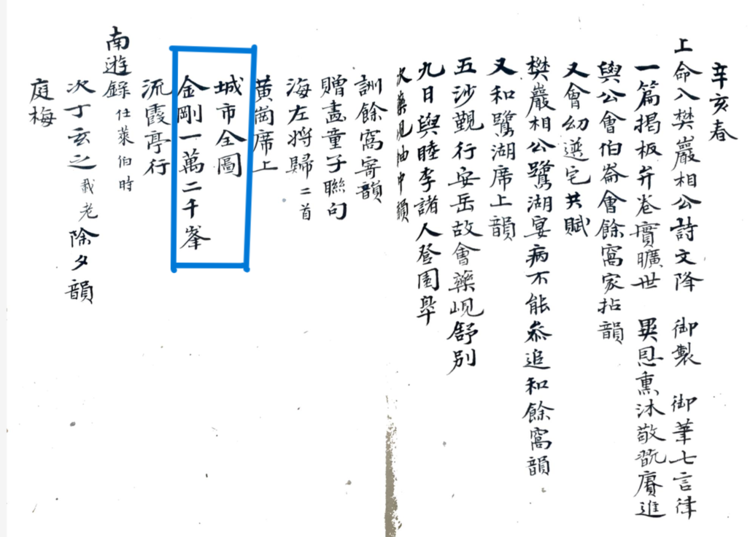 辛亥春
上命入樊巖相公詩文降 御製 御筆七言律
一篇揭板弁卷實曠世 異恩熏沐敬翫賡進
與公會伯崙會餘窩家拈韻
又會幼選宅共賦
樊巖相公鷺湖宴病不能叅追和餘窩韻
又和鷺湖席上韻
五沙觀行安岳故會藥峴舒別
九日與睦李諸人登圃皐
次藥峴油中韻
訓餘窩寄韻
贈畵童子聯句
海左將歸 二首
黃崗席上
城市全圖
金剛一萬二千峯
流霞亭行
南遊錄 仕萊伯時
次丁玄之 我老 除夕韻
庭梅